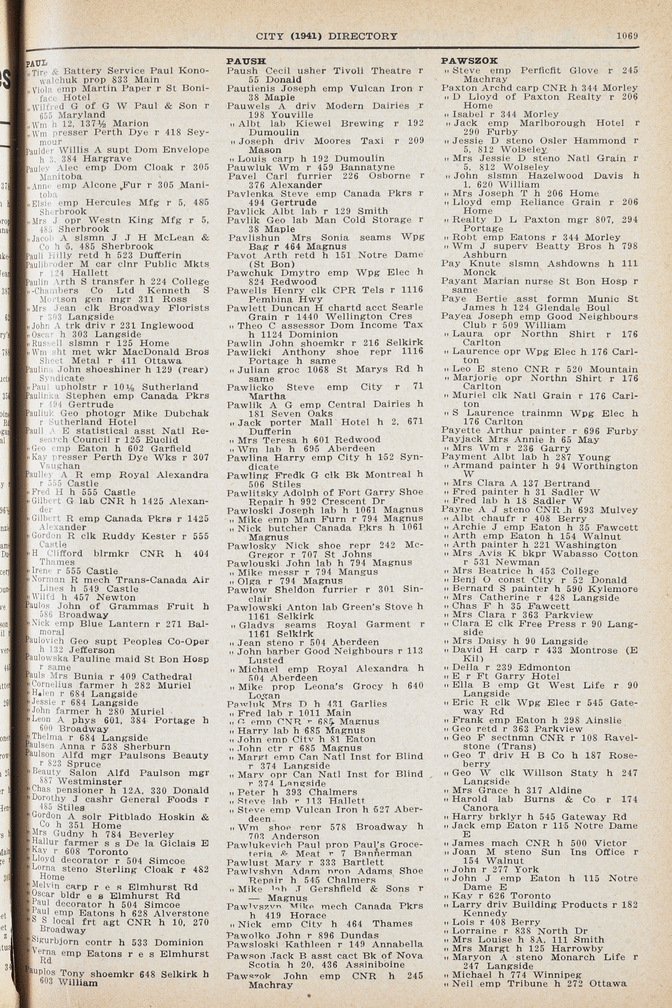 CITY (1941) DIRECTORY 1069
PAUL
„ Tire & Battery Service Paul Kono-
walchuk prop 833 Main
„ Viola emp Martin Paper r St Boni-
face Hotel
„ Wilfred G of G W Paul & Son r
655 Maryland
„ Wm h 12, 137½ Marion
„ Wm presser Perth Dye r 418 Sey-
mour
Paulder Willis A supt Dom Envelope
h 3, 384 Hargrave
Pauley Alec emp Dom Cloak r 305
Manitoba
„ Anne emp Alcone Fur r 305 Mani-
toba
„ Elsie emp Hercules Mfg r 5, 485
Sherbrook
„ Mrs J opr Westn King Mfg r 5,
485 Sherbrook
„ Jacob A slsmn J J H McLean &
Co h 5, 485 Sherbrook
Pauli Hilly retd h 523 Dufferin
Paulibroder M car clnr Public Mkts
r 124 Hallett
Paulin Arth S transfer h 224 College
„ -Chambers Co Ltd Kenneth S
Mortson gen mgr 311 Ross
„ Mrs Jean clk Broadway Florists
r 303 Langside
„ John A trk driv r 231 Inglewood
„ Oscar h 303 Langside
„ Russell slsmn r 125 Home
„ Wm sht met wkr MacDonald Bros
Sheet Metal r 411 Ottawa
Paulina John shoeshiner h 129 (rear)
Syndicate
„ Paul upholstr r 10½ Sutherland
Paulinka Stephen emp Canada Pkrs
r 494 Gertrude
Pauliuk Geo photogr Mike Dubchak
r Sutherland Hotel
Paull A E statistical asst Natl Re-
search Council r 125 Euclid
„ Geo emp Eaton h 602 Garfield
„ Kay presser Perth Dye Wks r 307
Vaughan
Paulley A R emp Royal Alexandra
r 555 Castle
„ Fred H h 555 Castle
„ Gilbert G lab CNR h 1425 Alexan-
der
„ Gilbert R emp Canada Pkrs r 1425
Alexander
„ Gordon R clk Ruddy Kester r 555
Castle
„ H Clifford blrmkr CNR h 404
Thames
„ Irene r 555 Castle
„ Norman R mech Trans-Canada Air
Lines h 549 Castle
„ Wilfd h 457 Newton
Paulos John of Grammas Fruit h
586 Broadway
„ Nick emp Blue Lantern r 271 Bal-
moral
Paulovich Geo supt Peoples Co-Oper
h 132 Jefferson
Paulowska Pauline maid St Bon Hosp
r same
Pauls Mrs Bunia r 409 Cathedral
„ Cornelius farmer h 282 Muriel
„ Helen r 684 Langside
„ Jessie r 684 Langside
„ John farmer h 280 Muriel
„ Leon A phys 601, 384 Portage h
600 Broadway
„ Thelma r 684 Langside
Paulsen Anna r 538 Sherburn
Paulson Alfd mgr Paulsons Beauty
r 823 Spruce
„ Beauty Salon Alfd Paulson mgr
887 Westminster
„ Chas pensioner h 12A, 330 Donald
„ Dorothy J cashr General Foods r
485 Stiles
„ Gordon A solr Pitblado Hoskin &
Co h 351 Home
„ Mrs Gudny h 784 Beverley
„ Hallur farmer s s De la Giclais E
„ Kay r 608 Toronto
„ Lloyd decorator r 504 Simcoe
„ Lorna steno Sterling Cloak r 482
Home
„ Melvin carp r e s Elmhurst Rd
„ Oscar bldr e s Elmhurst Rd
„ Paul decorator h 504 Simcoe
„ Paul emp Eatons h 628 Alverstone
„ S S local frt agt CNR h 10, 270
Broadway
„ Sigurbjorn contr h 533 Dominion
„ Verna emp Eatons r e s Elmhurst
Rd
Pauplos Tony shoemkr 648 Selkirk h
603 William
PAUSH
Paush Cecil usher Tivoli Theatre r
55 Donald
Pautienis Joseph emp Vulcan Iron r
38 Maple
Pauwels A driv Modern Dairies r
198 Youville
„ Albt lab Kiewel Brewing r 192
Dumoulin
„ Joseph driv Moores Taxi r 209
Mason
„ Louis carp h 192 Dumoulin
Pauwluk Wm r 459 Bannatyne
Pavel Carl furrier 226 Osborne r
376 Alexander
Pavlenka Steve emp Canada Pkrs r
494 Gertrude
Pavlick Albt lab r 129 Smith
Pavlik Geo lab Man Cold Storage r
38 Maple
Pavlishun Mrs Sonia seams Wpg
Bag r 464 Magnus
Pavot Arth retd h 151 Notre Dame
(St Bon)
Pawchuk Dmytro emp Wpg Elec h
824 Redwood
Pawells Henry clk CPR Tels r 1116
Pembina Hwy
Pawlett Duncan H chartd acct Searle
Grain r 1440 Wellington Cres
„ Theo C assessor Dom Income Tax
h 1124 Dominion
Pawlin John shoemkr r 216 Selkirk
Pawlicki Anthony shoe repr 1116
Portage h same
„ Julian groc 1068 St Marys Rd h
same
Pawlicko Steve emp City r 71
Martha
Pawlik A G emp Central Dairies h
181 Seven Oaks
„ Jack porter Mall Hotel h 2, 671
Dufferin
„ Mrs Teresa h 601 Redwood
„ Wm lab h 695 Aberdeen
Pawlina Harry emp City h 152 Syn-
dicate
Pawling Fredk G clk Bk Montreal h
506 Stiles
Pawlitsky Adolph of Fort Garry Shoe
Repair h 992 Crescent Dr
Pawloski Joseph lab h 1061 Magnus
„ Mike emp Man Furn r 794 Magnus
„ Nick butcher Canada Pkrs h 1061
Magnus
Pawlosky Nick shoe repr 242 Mc-
Gregor r 707 St Johns
Pawlouski John lab h 794 Magnus
„ Mike messr r 794 Mangus
„ Olga r 794 Magnus
Pawlow Sheldon furrier r 301 Sin-
clair
Pawlowski Anton lab Green's Stove h
1161 Selkirk
„ Gladys seams Royal Garment r
1161 Selkirk
„ Jean steno r 504 Aberdeen
„ John barber Good Neighbours r 113
Lusted
„ Michael emp Royal Alexandra h
504 Aberdeen
„ Mike prop Leona's Grocy h 640
Logan
Pawluk Mrs D h 431 Garlies
„ Fred lab r 1011 Main
„ G emp CNR r 685 Magnus
„ Harry lab h 685 Magnus
„ John emp City h 81 Eaton
„ John ctr r 685 Magnus
„ Margt emp Can Natl Inst for Blind
r 374 Langside
„ Mary opr Can Natl Inst for Blind
r 374 Langside
„ Peter h 393 Chalmers
„ Steve lab r 113 Hallett
„ Steve emp Vulcan Iron h 527 Aber-
deen
„ Wm shoe repr 578 Broadway h
703 Anderson
Pawlukevich Paul prop Paul's Groce-
teria & Meat r 7 Bannerman
Pawlust Mary r 333 Bartlett
Pawlyshyn Adam prop Adams Shoe
Repair h 545 Chalmers
„ Mike lab J Gershfield & Sons r
— Magnus
Pawlyszyn Mike mech Canada Pkrs
h 419 Horace
„ Nick emp City h 464 Thames
Pawolko John r 896 Dundas
Pawsloski Kathleen r 149 Annabella
Pawson Jack B asst cact Bk of Nova
Scotia h 20, 436 Assiniboine
Pawszok John emp CNR h 245
Machray
PAWSZOK
„ Steve emp Perfictfit Glove r 245
Machray
Paxton Archd carp CNR h 344 Morley
„ D Lloyd of Paxton Realty r 206
Home
„ Isabel r 344 Morley
„ Jack emp Marlborough Hotel r
290 Furby
„ Jessie D steno Osler Hammond r
5, 812 Wolseley
„ Mrs Jessie D steno Natl Grain r
5, 812 Wolseley
„ John slsmn Hazelwood Davis h
1, 620 William
„ Mrs Joseph T h 206 Home
„ Lloyd emp Reliance Grain r 206
Home
„ Realty D L Paxton mgr 807, 294
Portage
„ Robt emp Eatons r 344 Morley
„ Wm J superv Beatty Bros h 798
Ashburn
Pay Knute slsmn Ashdowns h 111
Monck
Payant Marian nurse St Bon Hosp r
same
Paye Bertie asst formn Munic St
James h 124 Glendale Boul
Payea Joseph emp Good Neighbours
Club r 509 William
„ Laura opr Northn Shirt r 176
Carlton
„ Laurence opr Wpg Elec h 176 Carl-
ton
„ Leo E steno CNR r 520 Mountain
„ Marjorie opr Northn Shirt r 176
Carlton
„ Muriel clk Natl Grain r 176 Carl-
ton
„ S Laurence trainmn Wpg Elec h
176 Carlton
Payette Arthur painter r 696 Furby
Payjack Mrs Annie h 65 May
„ Mrs Wm r 236 Garry
Payment Albt lab h 287 Young
„ Armand painter h 94 Worthington
W
„ Mrs Clara A 137 Bertrand
„ Fred painter h 31 Sadler W
„ Fred lab h 18 Sadler W
Payne A J steno CNR h 693 Mulvey
„ Albt chaufr r 408 Berry
„ Archie J emp Eaton h 35 Fawcett
„ Arth emp Eaton h 154 Walnut
„ Arth painter h 221 Washington
„ Mrs Avis K bkpr Wabasso Cotton
r 531 Newman
„ Mrs Beatrice h 453 College
„ Benj O const City r 52 Donald
„ Bernard S painter h 590 Kylemore
„ Mrs Catherine r 428 Langside
„ Chas F h 35 Fawcett
„ Mrs Clara r 363 Parkview
„ Clara E clk Free Press r 90 Lang-
side
„ Mrs Daisy h 90 Langside
„ David H carp r 433 Montrose (E
Kil)
„ Della r 239 Edmonton
„ E r Ft Garry Hotel
„ Ella B emp Gt West Life r 90
Langside
„ Eric R clk Wpg Elec r 545 Gate-
way Rd
„ Frank emp Eaton h 298 Ainslie
„ Geo retd r 363 Parkview
„ Geo F sectnmn CNR r 108 Ravel-
stone (Trans)
„ Geo T driv H B Co h 187 Rose-
berry
„ Geo W clk Willson Staty h 247
Langside
„ Mrs Grace h 317 Aldine
„ Harold lab Burns & Co r 174
Canora
„ Harry brklyr h 545 Gateway Rd
„ Jack emp Eaton r 115 Notre Dame
E
„ James mach CNR h 500 Victor
„ Joan M steno Sun Ins Office r
154 Walnut
„ John r 277 York
„ John J emp Eaton h 115 Notre
Dame E
„ Kay r 626 Toronto
„ Larry driv Building Products r 182
Kennedy
„ Lois r 408 Berry
„ Lorraine r 838 North Dr
„ Mrs Louise h 8A, 111 Smith
„ Mrs Margt h 125 Harrowby
„ Maryon A steno Monarch Life r
247 Langside
„ Michael h 774 Winnipeg
„ Neil emp Tribune h 272 Ottawa